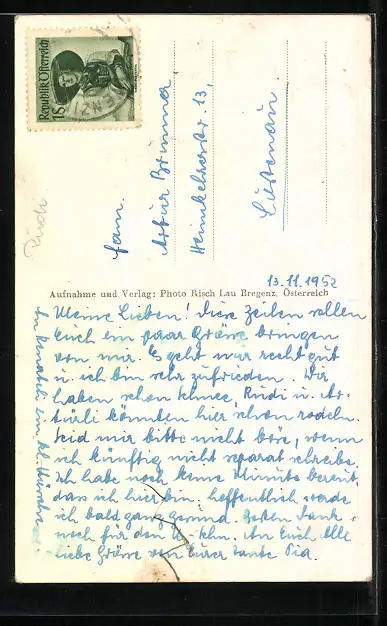 Republik Österreich
1 S
ENZ
Rudi
Fam.
Artur Brunner
Heinkelnstr. 13,
Lustenau.
13.11.1952
Aufnahme und Verlag: Photo Risch Lau Bregenz, Österreich
Meine Lieben! Diese Zeilen sollen
Euch ein paar Grüsse bringen
von mir. Es geht mir recht gut
u. ich bin sehr zufrieden. Wir
haben schon Schnee, Rudi u. Ar-
türli könnten hier schon rodeln.
Seid mir bitte nicht böse, wenn
ich künftig nicht separat schreibe.
Ich habe noch keine Minute bereut,
dass ich hier bin. Hoffentlich werde
ich bald ganz gesund. Besten Dank
noch für den
An Euch Alle
liebe Grüsse von Eurer Tante Pia.